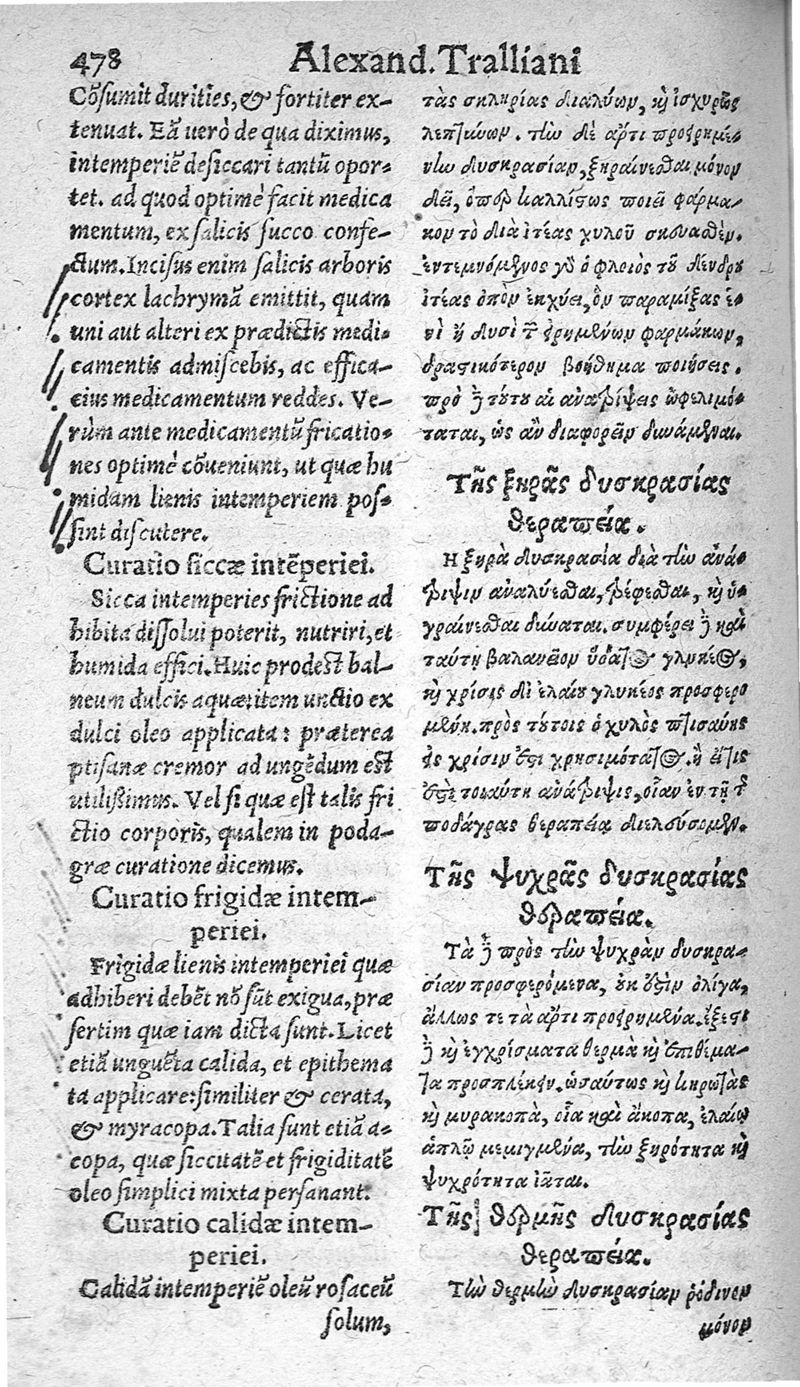 478
Alexand. Tralliani
Cõsumit durities, & fortiter ex-
tenuat. Eã uerò de qua diximus,
intemperiẽ desiccari tantũ opor-
tet. ad quod optimè facit medica
mentum, ex salicis succo confe-
ctum. Incisus enim salicis arboris
cortex lachrymã emittit, quam
uni aut alteri ex prædictis medi-
camentis admiscebis, ac effica-
cius medicamentum reddes. Ve-
rùm ante medicamentũ fricatio-
nes optimè cõueniunt, ut quæ hu
midam lienis intemperiem pos-
sint discutere.
Curatio siccæ intẽperiei.
Sicca intemperies frictione ad
hibita dissolui poterit, nutriri, et
humida effici. Huic prodest bal-
neum dulcis aquæ: item unctio ex
dulci oleo applicata: præterea
ptisanæ cremor ad ungẽdum est
utilissimus. Vel si quæ est talis fri
ctio corporis, qualem in poda-
græ curatione dicemus.
Curatio frigidæ intem-
periei.
Frigidæ lienis intemperiei quæ
adhiberi debẽt nõ sũt exigua, præ
sertim quæ iam dicta sunt. Licet
etiã unguẽta calida, et epithema
ta applicare: similiter & cerata,
& myracopa. Talia sunt etiã a-
copa, quæ siccitatẽ et frigiditatẽ
oleo simplici mixta persanant.
Curatio calidæ intem-
periei.
Calidã intemperiẽ oleũ rosaceũ
solum,
τὰς σκληρίας διαλύων, καὶ ἰσχυρῶς
λεπτύνων. τὴν δὲ ἄρτι προειρημέ-
νην δυσκρασίαν, ξηραίνεσθαι μόνον
δεῖ, ὅπερ καλλίστως ποιεῖ φάρμα-
κον τὸ διὰ ἰτέας χυλοῦ σκευασθέν.
ἐντεμνόμενος γὰρ ὁ φλοιὸς τοῦ δένδρου
ἰτέας ὀπὸν ἐκχύει, ὃν παραμίξας ἑ-
νὶ ἢ δυσὶ τῶν εἰρημένων φαρμάκων,
δραστικότερον βοήθημα ποιήσεις.
πρὸ δὲ τούτου αἱ ἀνατρίψεις ὠφελιμό-
ταται, ὡς ἂν διαφορεῖν δυνάμεναι.
Τῆς ξηρᾶς δυσκρασίας
θεραπεία.
Η ξηρὰ δυσκρασία διὰ τὴν ἀνά-
τριψιν ἀναλύεσθαι, τρέφεσθαι, καὶ ὑ-
γραίνεσθαι δύναται. συμφέρει δὲ καὶ
ταύτη βαλανεῖον ὕδατος γλυκέος,
καὶ χρίσις δι' ἐλαίου γλυκέος προσφερο
μένη. πρὸς τούτοις ὁ χυλὸς πτισάνης
εἰς χρίσιν ἐστὶ χρησιμότατος. ἢ εἴ τις
ἐστὶ τοιαύτη ἀνάτριψις, οἵαν ἐν τῇ τῆς
ποδάγρας θεραπείᾳ διελευσόμεθα.
Τῆς ψυχρᾶς δυσκρασίας
θεραπεία.
Τὰ δὲ πρὸς τὴν ψυχρὰν δυσκρα-
σίαν προσφερόμενα, οὐκ ἔστιν ὀλίγα,
ἄλλως τε τὰ ἄρτι προειρημένα. ἔξεστι
δὲ καὶ ἐγχρίσματα θερμὰ καὶ ἐπιθέμα-
τα προσπλέκειν. ὡσαύτως καὶ κηρωτὰς
καὶ μυρακοπὰ, οἷα καὶ ἄκοπα, ἐλαίῳ
ἁπλῷ μεμιγμένα, τὴν ξηρότητα καὶ
ψυχρότητα ἰᾶται.
Τῆς θερμῆς δυσκρασίας
θεραπεία.
Τὴν θερμὴν δυσκρασίαν ῥόδινον
μόνον